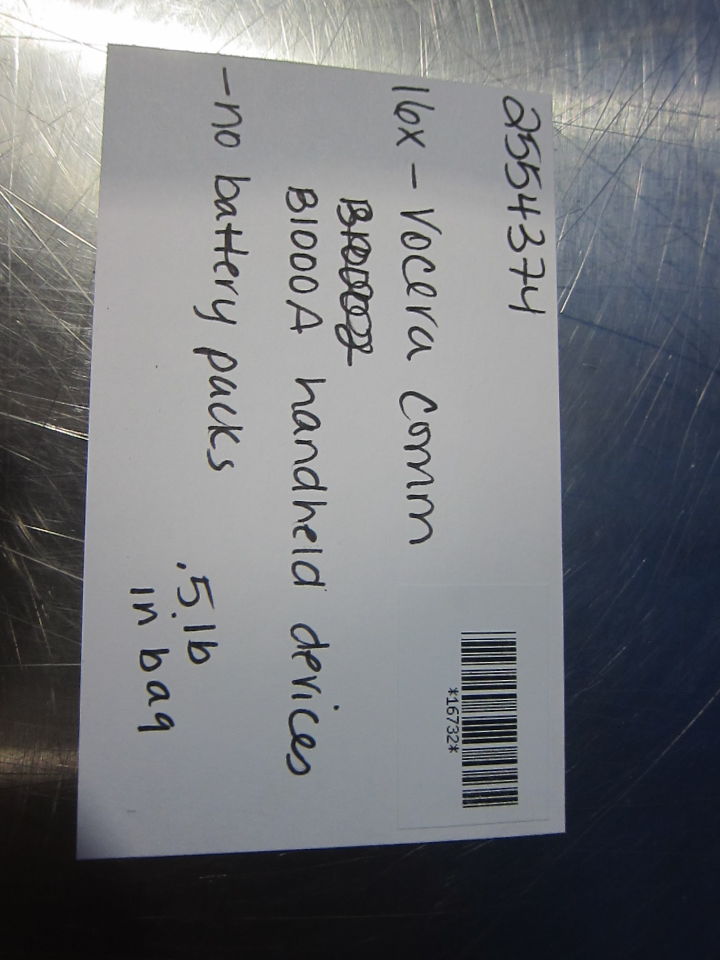 2554374
16x - Vocera Comm
B1000A handheld devices
- no battery packs
.5 lb
in bag
*16732*